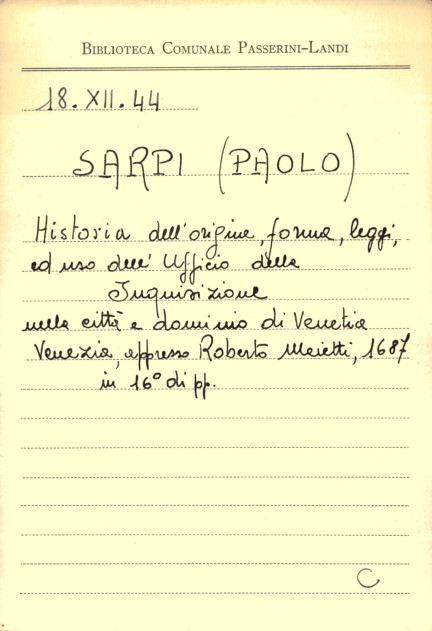 BIBLIOTECA COMUNALE PASSERINI-LANDI
18. XII. 44
SARPI (PAOLO)
Historia dell'origine, forma, leggi,
ed uso dell' Ufficio della
Inquisizione
nella città e dominio di Venetia
Venezia, appresso Roberto Meietti, 1687
in 16° di pp.
C